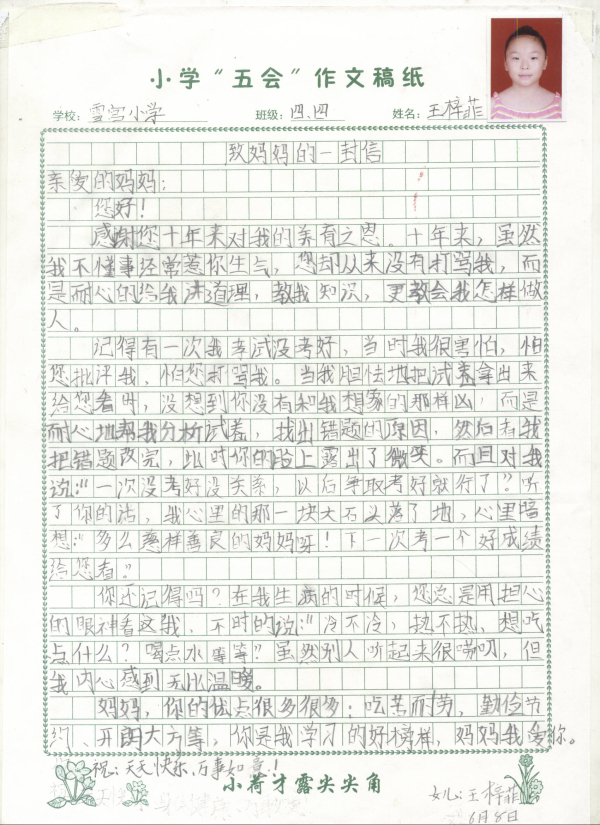 小学“五会”作文稿纸
学校：雪宫小学 班级：四、四 姓名：王梓菲
致妈妈的一封信
亲爱的妈妈：
您好！
感谢您十年来对我的养育之恩。十年来，虽然
我不懂事经常惹你生气，您却从来没有打骂我，而
是耐心的给我讲道理，教我知识，更教会我怎样做
人。
记得有一次我考试没考好，当时我很害怕，怕
您批评我，怕您打骂我。当我胆怯地把试卷拿出来
给您看时，没想到你没有和我想象的那样凶，而是
耐心地帮我分析试卷，找出错题的原因，然后看我
把错题改完，此时你的脸上露出了微笑。而且对我
说：“一次没考好没关系，以后争取考好就行了”听
了你的话，我心里的那一块大石头落了地，心里暗
想：“多么慈祥善良的妈妈呀！下一次考一个好成绩
给您看。”
你还记得吗？在我生病的时候，您总是用担心
的眼神看这我，不时的说：“冷不冷，热不热，想吃
点什么？喝点水等等？虽然别人听起来很唠叨，但
我内心感到无比温暖。
妈妈，你的优点很多很多：吃苦而劳，勤俭节
约、开朗大方等，你是我学习的好榜样，妈妈我爱你。
祝：天天快乐，万事如意！
小荷才露尖尖角
女儿：王梓菲
6月8日